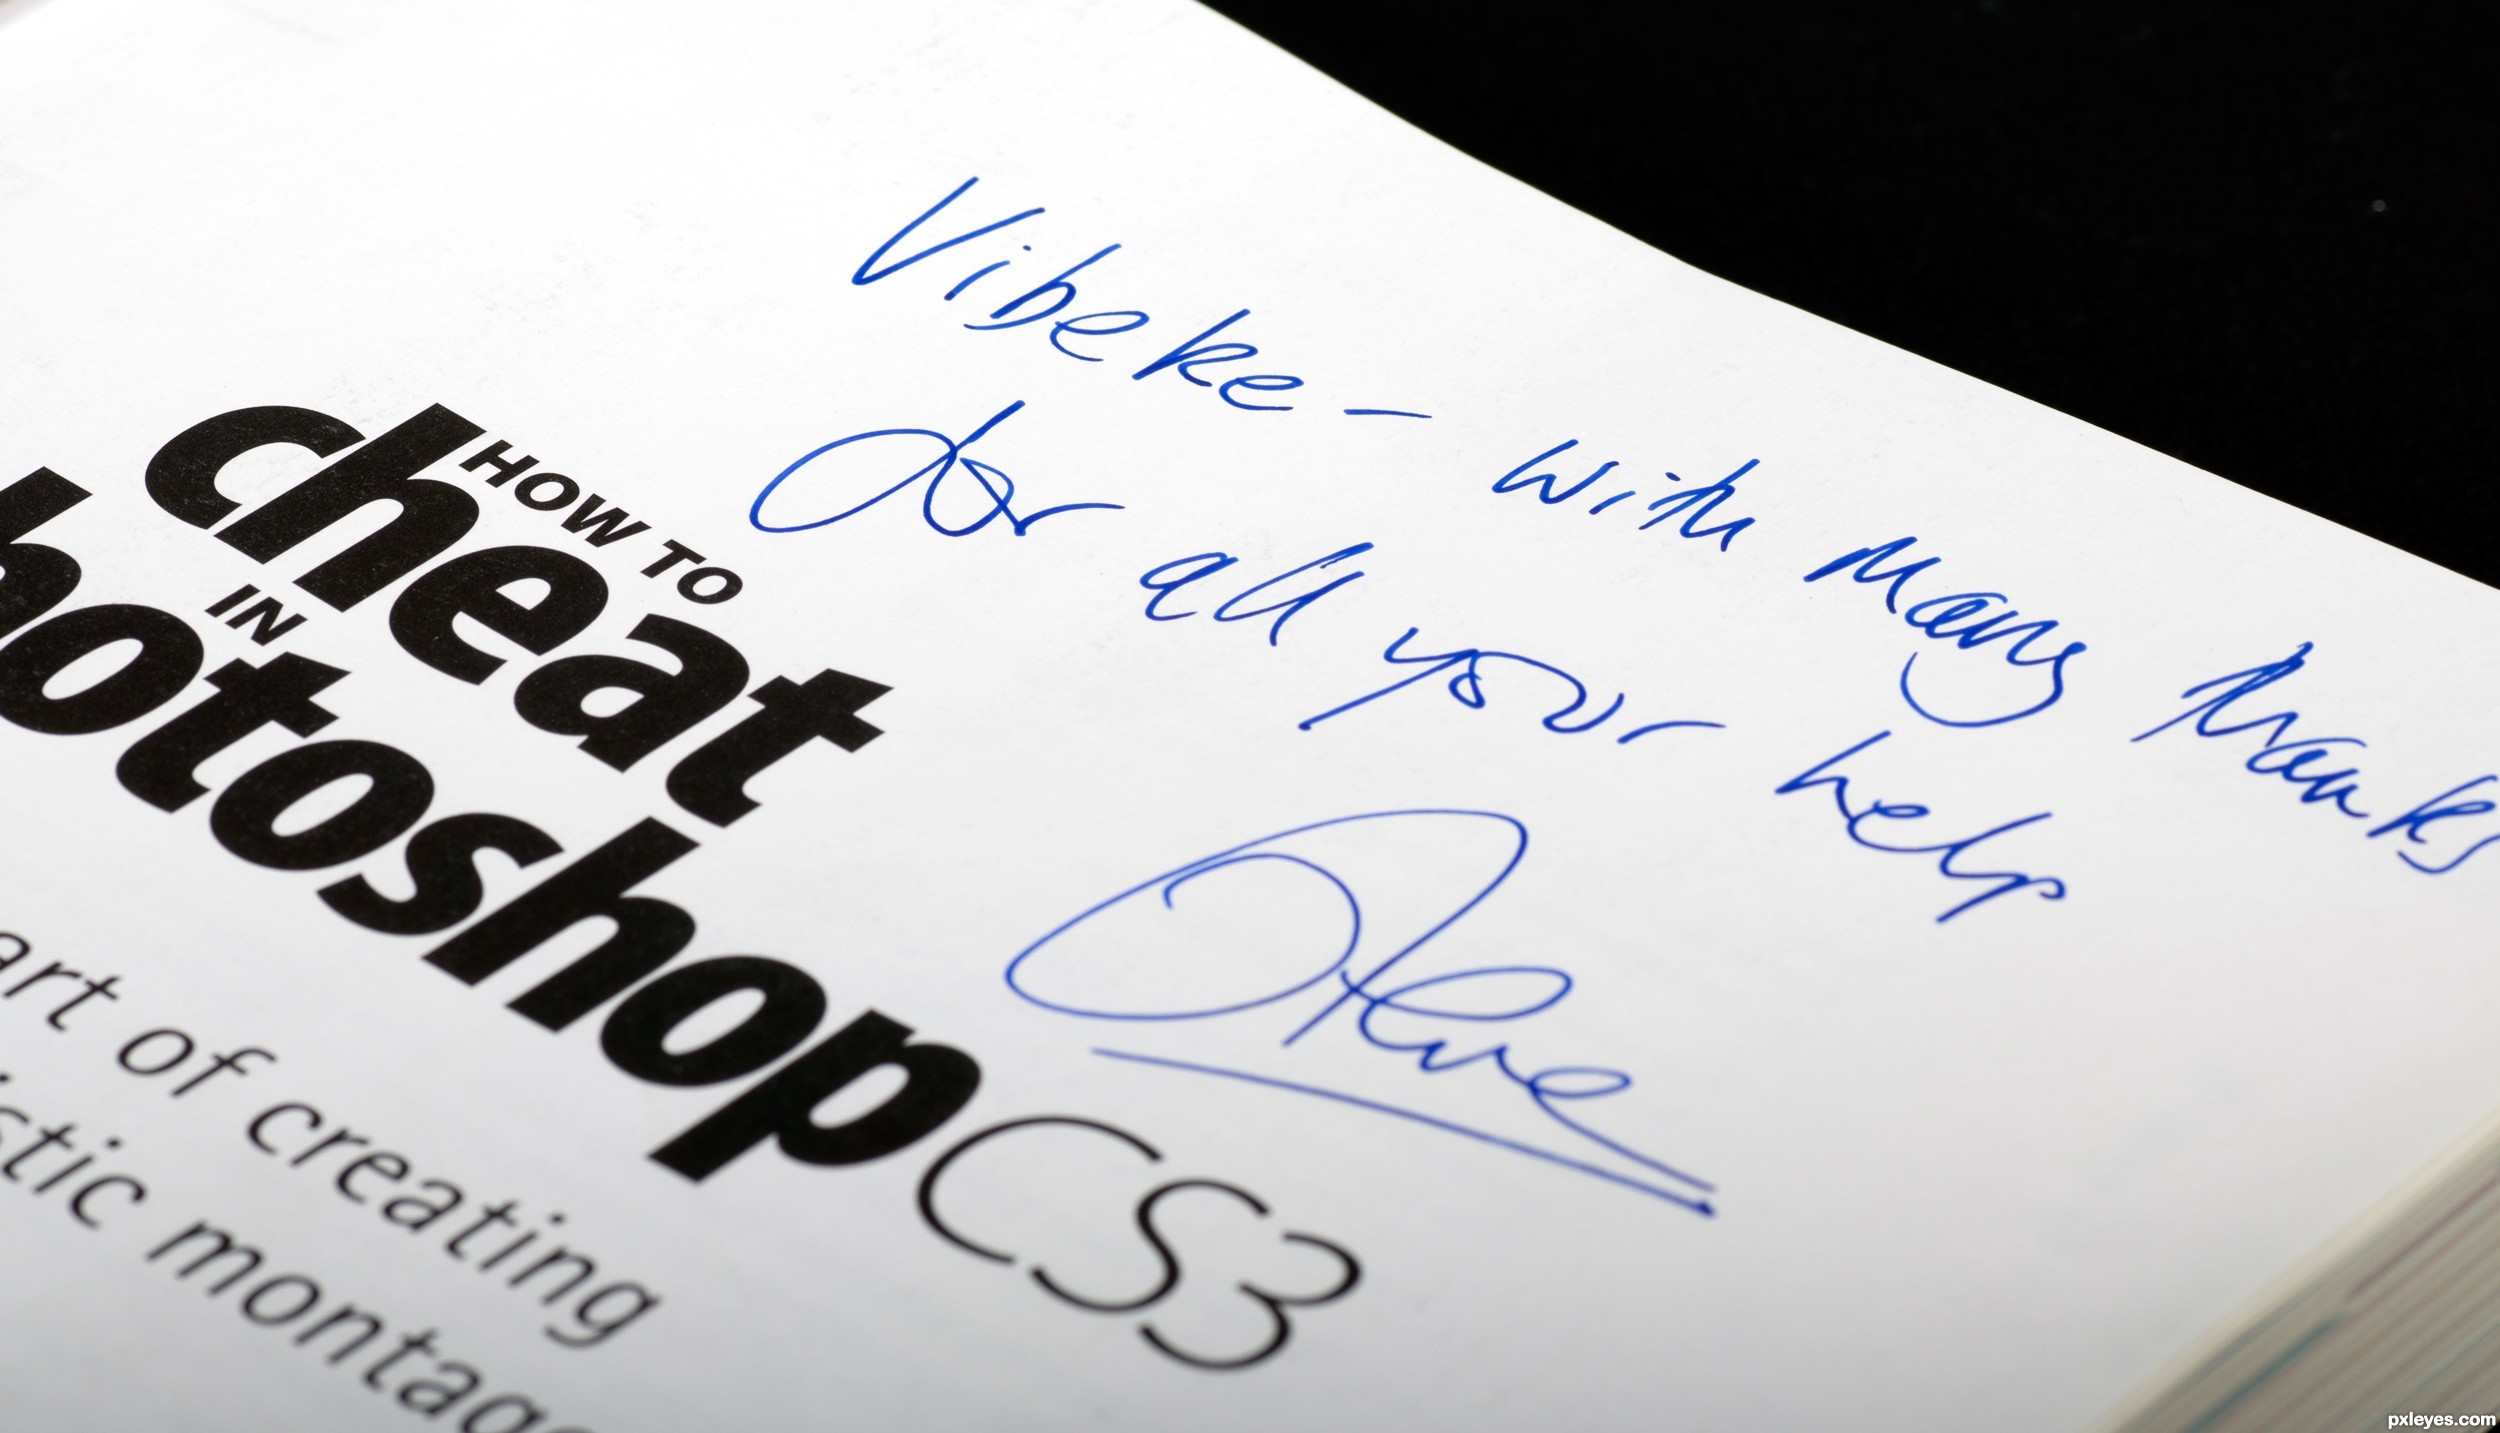 Vibeke – with many thanks
for all your help
Steve
HOW TO
cheat
IN
hotoshop CS3
art of creating
istic montage
pxleyes.com